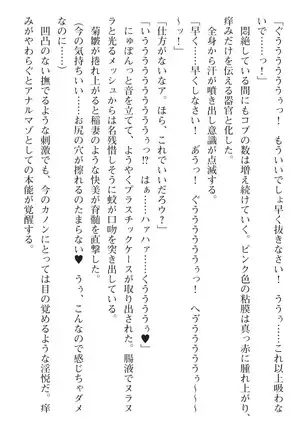 「ぐうううううぅっ！　もういいでしょ早く抜きなさい！　ううぅ……これ以上吸わないでっ！」
　悶絶している間にもコブの数は増え続けていく。ピンク色の粘膜は真っ赤に腫れ上がり、
痒みだけを伝える器官と化した。
　全身から汗が噴き出し意識が点滅する。
「早く……早くしなさい！　あうっ！　ぐううううぅっ！　へヴううううぅぅ～～～っ！」
「仕方がないなァ。ほら、これでいいだろウ？」
「いううううううううぅぅっ!?　はぁ……ハァハァ……くうううぅ♥」
　にゅぽんっと音を立てて、ようやくプラスチックケースが取り出された。腸液でヌラヌ
ラと光るメッシュからは名残惜しそうに蚊が口吻を突き出している。
　菊皺が捲れ上がると稲妻のような快美が脊髄を直撃した。
（今の気持ちいい……お尻の穴が擦れるのたまらない♥　うぅ、こんなので感じちゃダメ
なのに……）
　凹凸の撫でるような刺激でも、今のカノンにとっては目の覚めるような淫悦だ。痒
みがやわらぐとアナルマゾとしての本能が覚醒する。